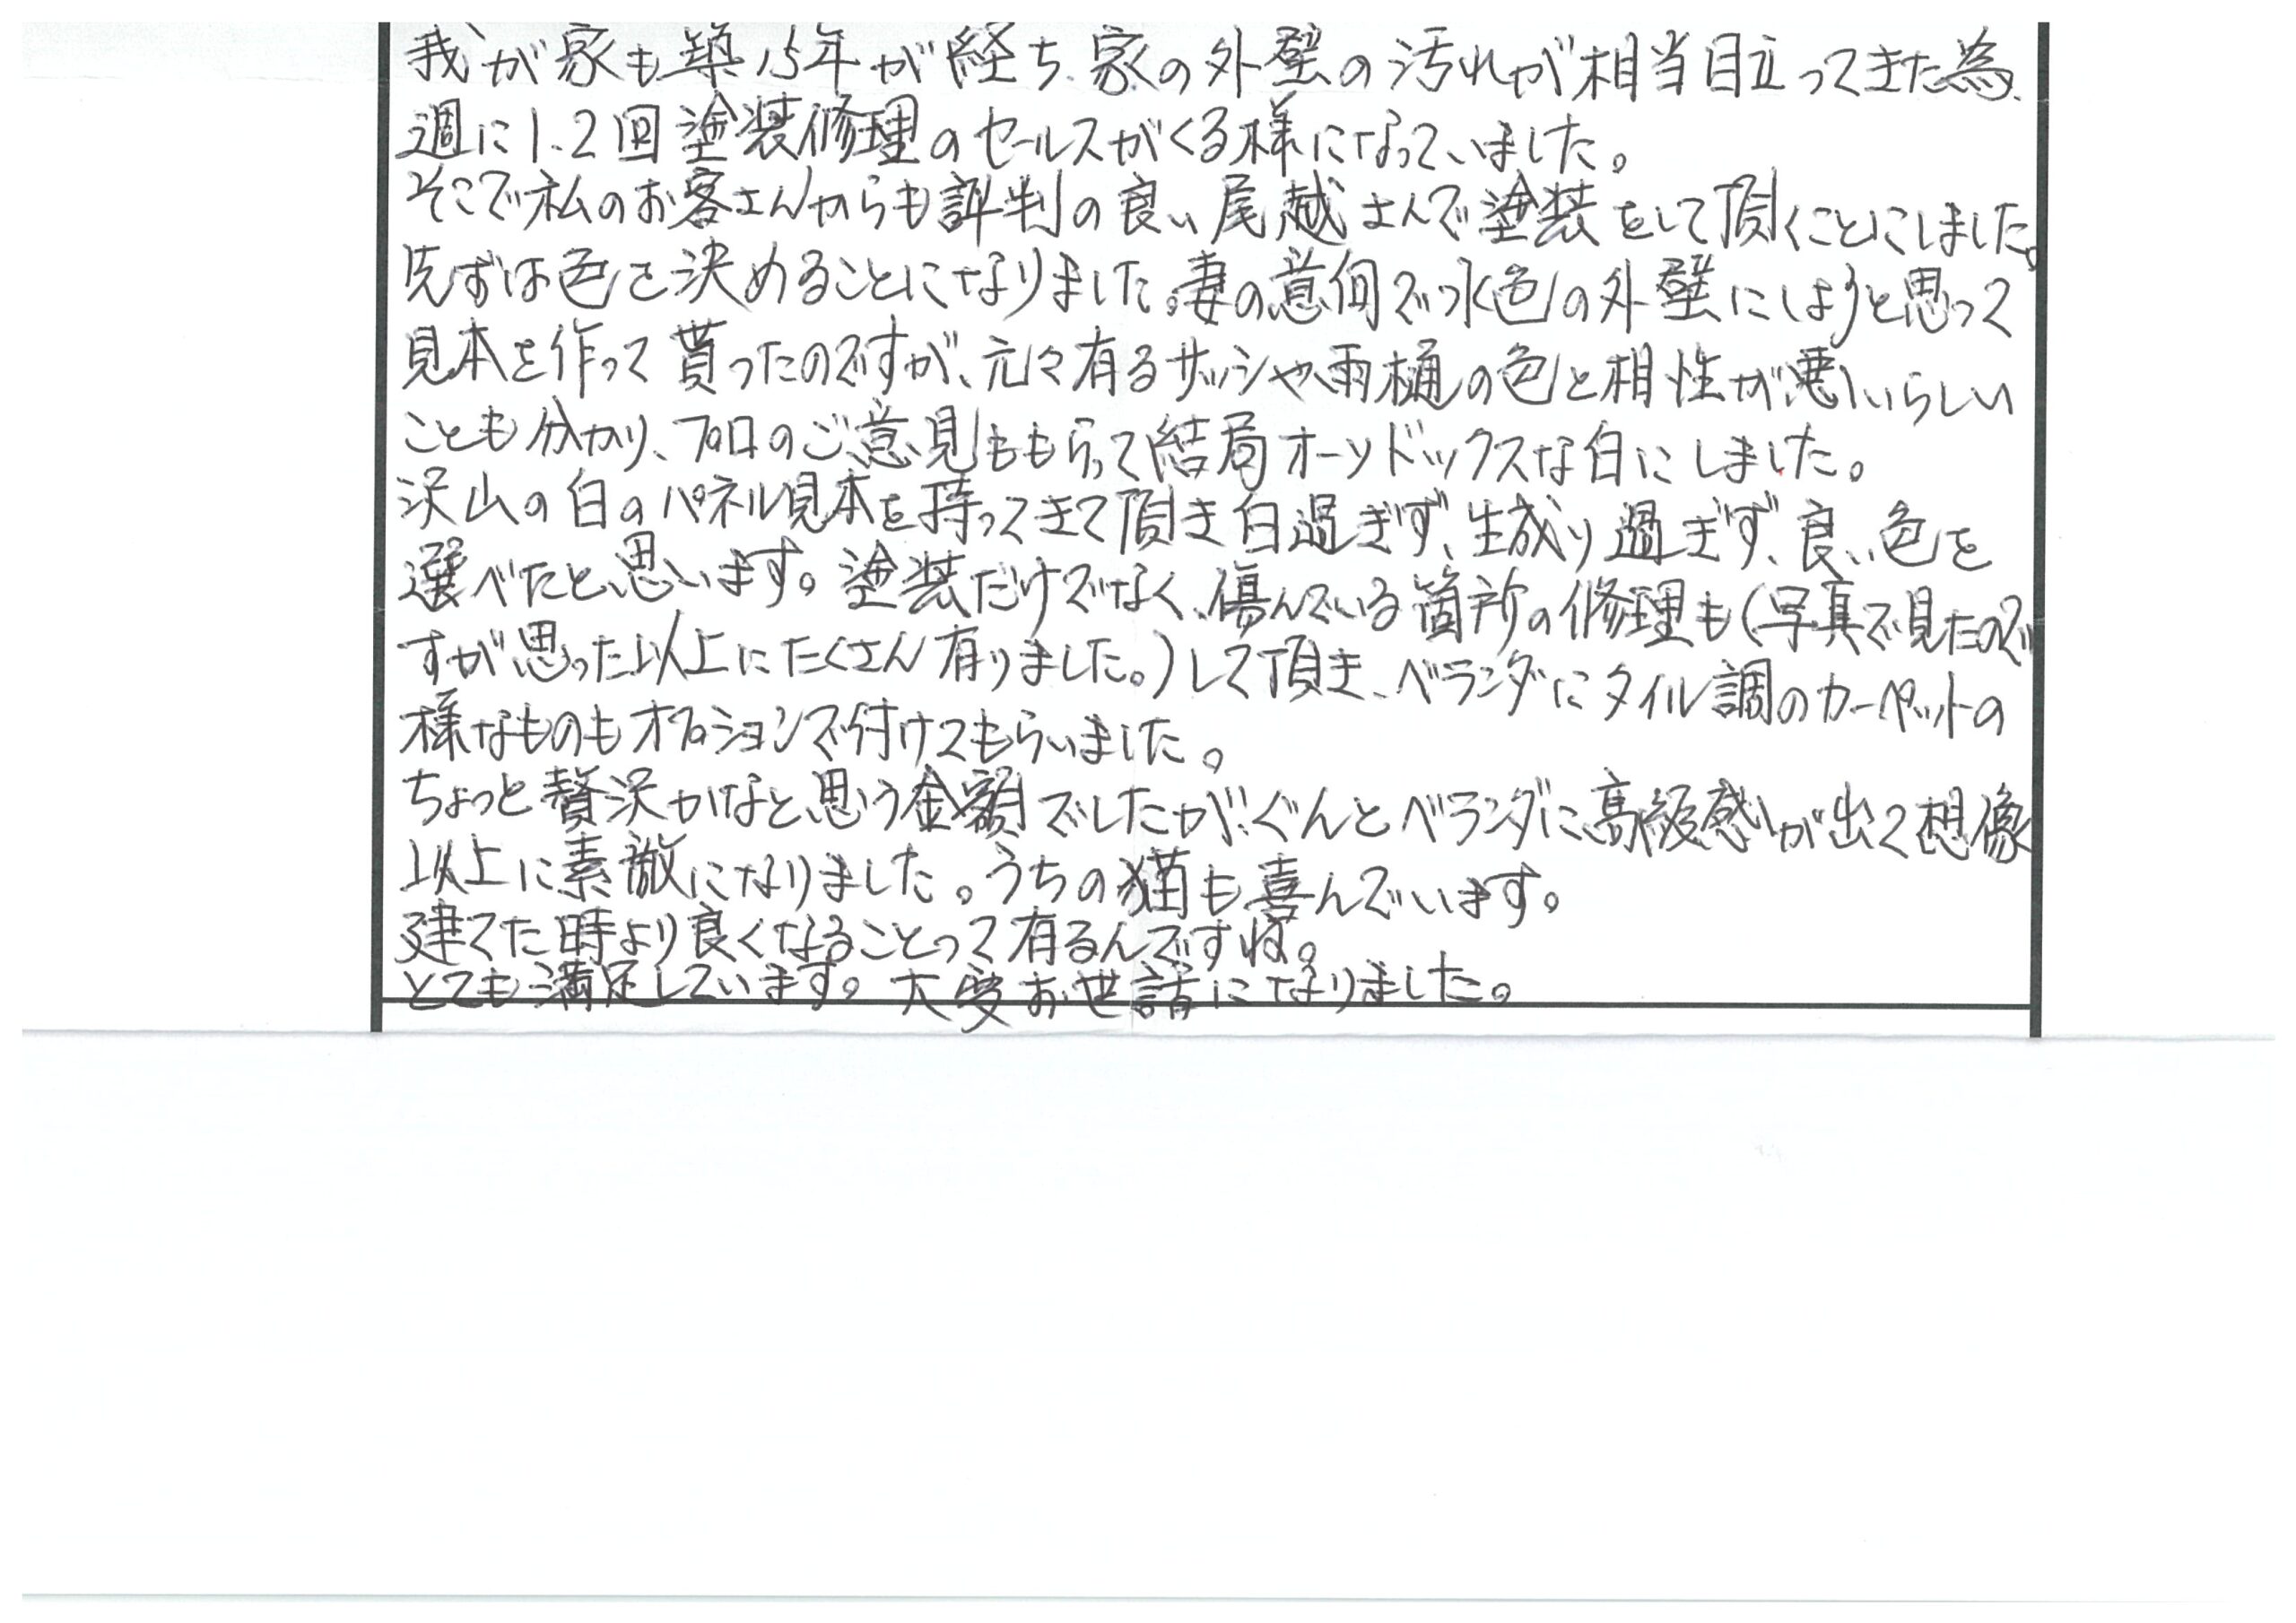 我が家も築15年が経ち、家の外壁の汚れが相当目立ってきた為、
週に1、2回塗装修理のセールスがくる様になっていました。
そこで私のお客さんからも評判の良い尾越さんで塗装をして頂くことにしました。
先ずは色を決めることになりました。妻の意向で水色の外壁にしようと思って
見本を作って貰ったのですが、元々有るサッシや雨樋の色と相性が悪いらしい
ことも分かり、プロのご意見ももらって結局オーソドックスな白にしました。
沢山の白のパネル見本を持ってきて頂き白過ぎず、生成り過ぎず、良い色を
選べたと思います。塗装だけでなく、傷んでいる箇所の修理も(写真で見たので
すが思った以上にたくさん有りました。)して頂き、ベランダにタイル調のカーペットの
様なものもオプションで付けてもらいました。
ちょっと贅沢かなと思う金額でしたが、ぐんとベランダに高級感が出て想像
以上に素敵になりました。うちの猫も喜んでいます。
建てた時より良くなることって有るんですね。
とても満足しています。大変お世話になりました。